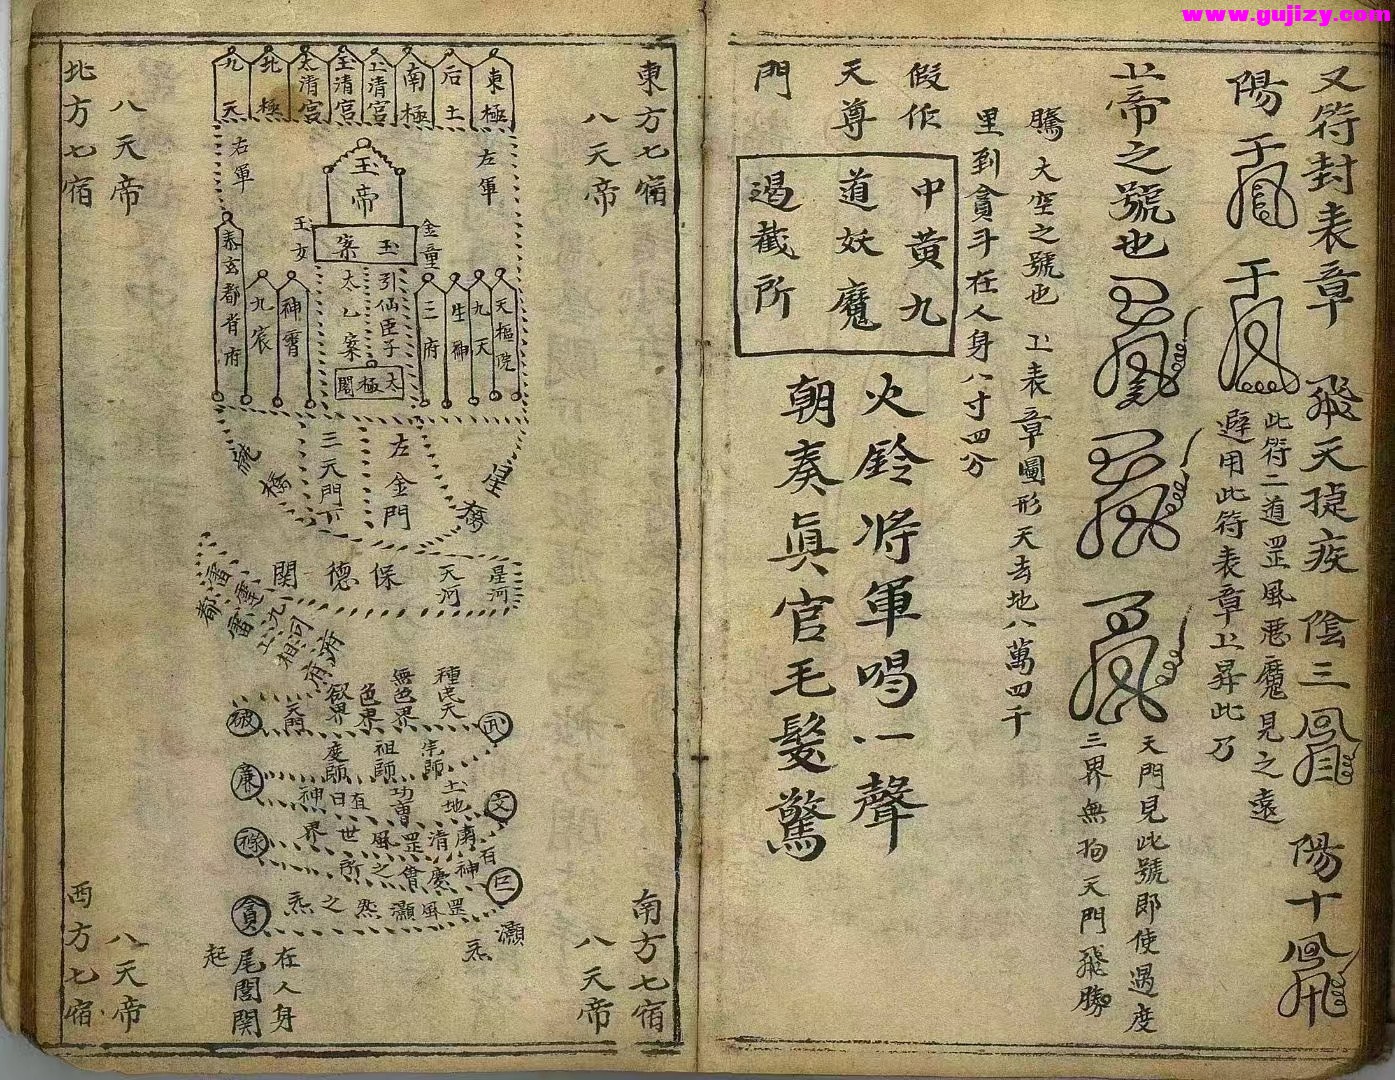 www.gujizy.com
又符封表章 飛天捷疾 陰三 陽十
陽
此符二道罡風惡魔見之遠
避用此符表章上昇此乃
上帝之號也
天門見此號即使過度
三界無拘天門飛騰
騰大空之號也 上表章圖形天去地八萬四千
里到貪斗在人身八寸四分
假作
天尊
門
中黃九
道妖魔
遏截所
火鈴將軍喝一聲
朝奏眞官毛髮驚
東方七宿
八天帝
南方七宿
八天帝
東極
后土
南極
上清宮
玉清宮
太清宮
北極
九天
左軍
右軍
玉帝
玉案
金童
玉女
天樞院
九天
生神
三府
引仙臣子
太乙案
太極閣
神霄
九宸
泰玄都省府
星橋
左金門
三天門下
星河
天河
保德關
種民天
無色界
色界
欲界
天門
破
廉
祿
貪
武
文
巨
宗師
祖師
度師
土地
功曹
直日神
南清罡風世界
百神慶會之所
罡風灝炁之炁
灝炁
在人身
尾閭關
起
八天帝
北方七宿
八天帝
西方七宿